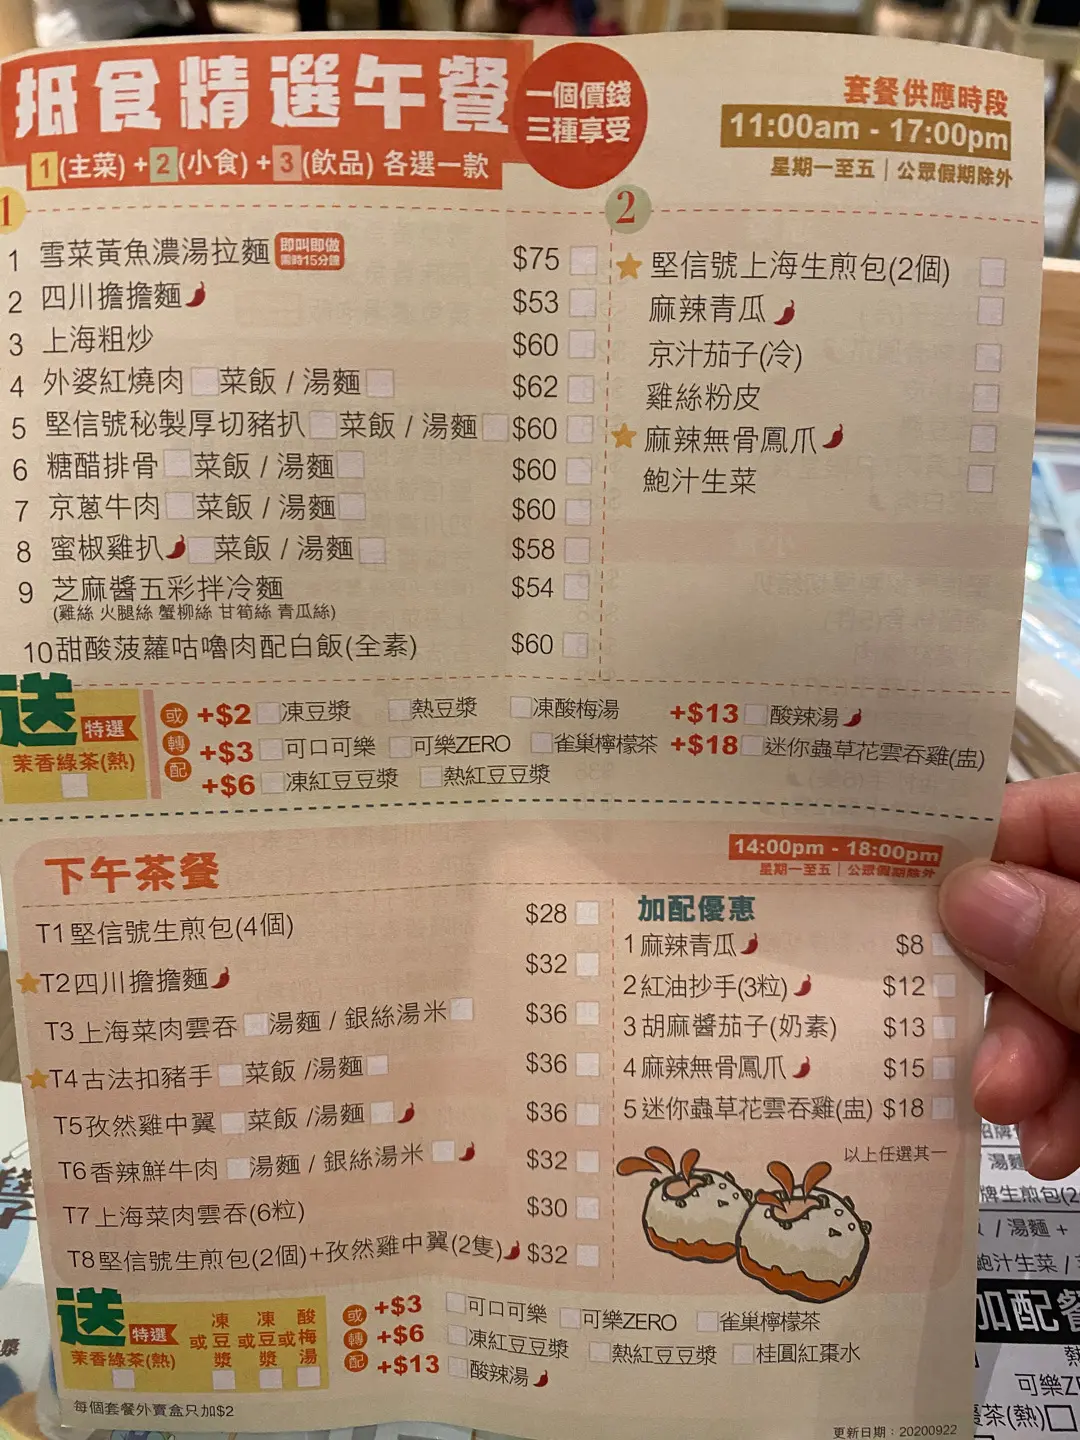 抵食精選午餐
一個價錢
三種享受
1(主菜)+2(小食)+3(飲品) 各選一款
套餐供應時段
11:00am - 17:00pm
星期一至五｜公眾假期除外
1
1 雪菜黃魚濃湯拉麵 即叫即做 需時15分鐘 $75
2 四川擔擔麵 $53
3 上海粗炒 $60
4 外婆紅燒肉 菜飯 / 湯麵 $62
5 堅信號秘製厚切豬扒 菜飯 / 湯麵 $60
6 糖醋排骨 菜飯 / 湯麵 $60
7 京蔥牛肉 菜飯 / 湯麵 $60
8 蜜椒雞扒 菜飯 / 湯麵 $58
9 芝麻醬五彩拌冷麵 $54
(雞絲 火腿絲 蟹柳絲 甘筍絲 青瓜絲)
10 甜酸菠蘿咕嚕肉配白飯(全素) $60
2
堅信號上海生煎包(2個)
麻辣青瓜
京汁茄子(冷)
雞絲粉皮
麻辣無骨鳳爪
鮑汁生菜
送 特選
茉香綠茶(熱)
或轉配
+$2 凍豆漿 熱豆漿 凍酸梅湯 +$13 酸辣湯
+$3 可口可樂 可樂ZERO 雀巢檸檬茶 +$18 迷你蟲草花雲吞雞(盅)
+$6 凍紅豆豆漿 熱紅豆豆漿
下午茶餐
14:00pm - 18:00pm
星期一至五｜公眾假期除外
T1 堅信號生煎包(4個) $28
T2 四川擔擔麵 $32
T3 上海菜肉雲吞 湯麵 / 銀絲湯米 $36
T4 古法扣豬手 菜飯 /湯麵 $36
T5 孜然雞中翼 菜飯 /湯麵 $36
T6 香辣鮮牛肉 湯麵 / 銀絲湯米 $32
T7 上海菜肉雲吞(6粒) $30
T8 堅信號生煎包(2個)+孜然雞中翼(2隻) $32
加配優惠
1 麻辣青瓜 $8
2 紅油抄手(3粒) $12
3 胡麻醬茄子(奶素) $13
4 麻辣無骨鳳爪 $15
5 迷你蟲草花雲吞雞(盅) $18
以上任選其一
送 特選
茉香綠茶(熱)
或凍豆漿 或凍豆漿 或酸梅湯
或轉配
+$3 可口可樂 可樂ZERO 雀巢檸檬茶
+$6 凍紅豆豆漿 熱紅豆豆漿 桂圓紅棗水
+$13 酸辣湯
每個套餐外賣盒只加$2
更新日期：20200922
招牌
湯麵
牌生煎包(2
/ 湯麵 +
鮑汁生菜 /
加配餐
熱
可樂ZE
茶(熱)
漿